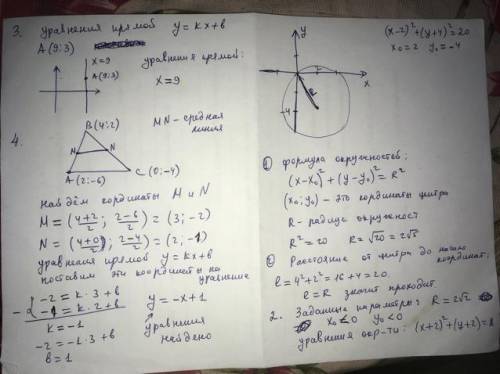 3. уравнения прямой y = kx+b
A(9;3)
x=9
A(9;3)
уравнения прямой:
x=9
4.
B(4;2)
M
N
A(2;-6)
C(0;-4)
MN - средная
линия
найдём кординаты M и N
M = (4+2/2; 2-6/2) = (3; -2)
N = (4+0/2; 2-4/2) = (2; -1)
уравнения прямой y = kx+b
поставим эти координаты на
уравнение
-2 = k·3+b
-1 = k·2+b
k = -1
-2 = -1·3+b
b = 1
y = -x+1
уравнения
найдено
(x-2)²+(y+4)²=20
x₀=2 y₀=-4
y
2
x
R
-4
1 формула окружностей:
(x-x₀)²+(y-y₀)² = R²
(x₀; y₀) - это кординаты центра
R - радиус окружност
R² = 20 R = √20 = 2√5
2 Расстояние от центра до начало
координат:
l = 4²+2² = 16+4 = 20.
l = R значит проходит
2. Заданные параметры: R = 2√2
x₀<0 y₀<0
уравнения окр-ти: (x+2)²+(y+2)=